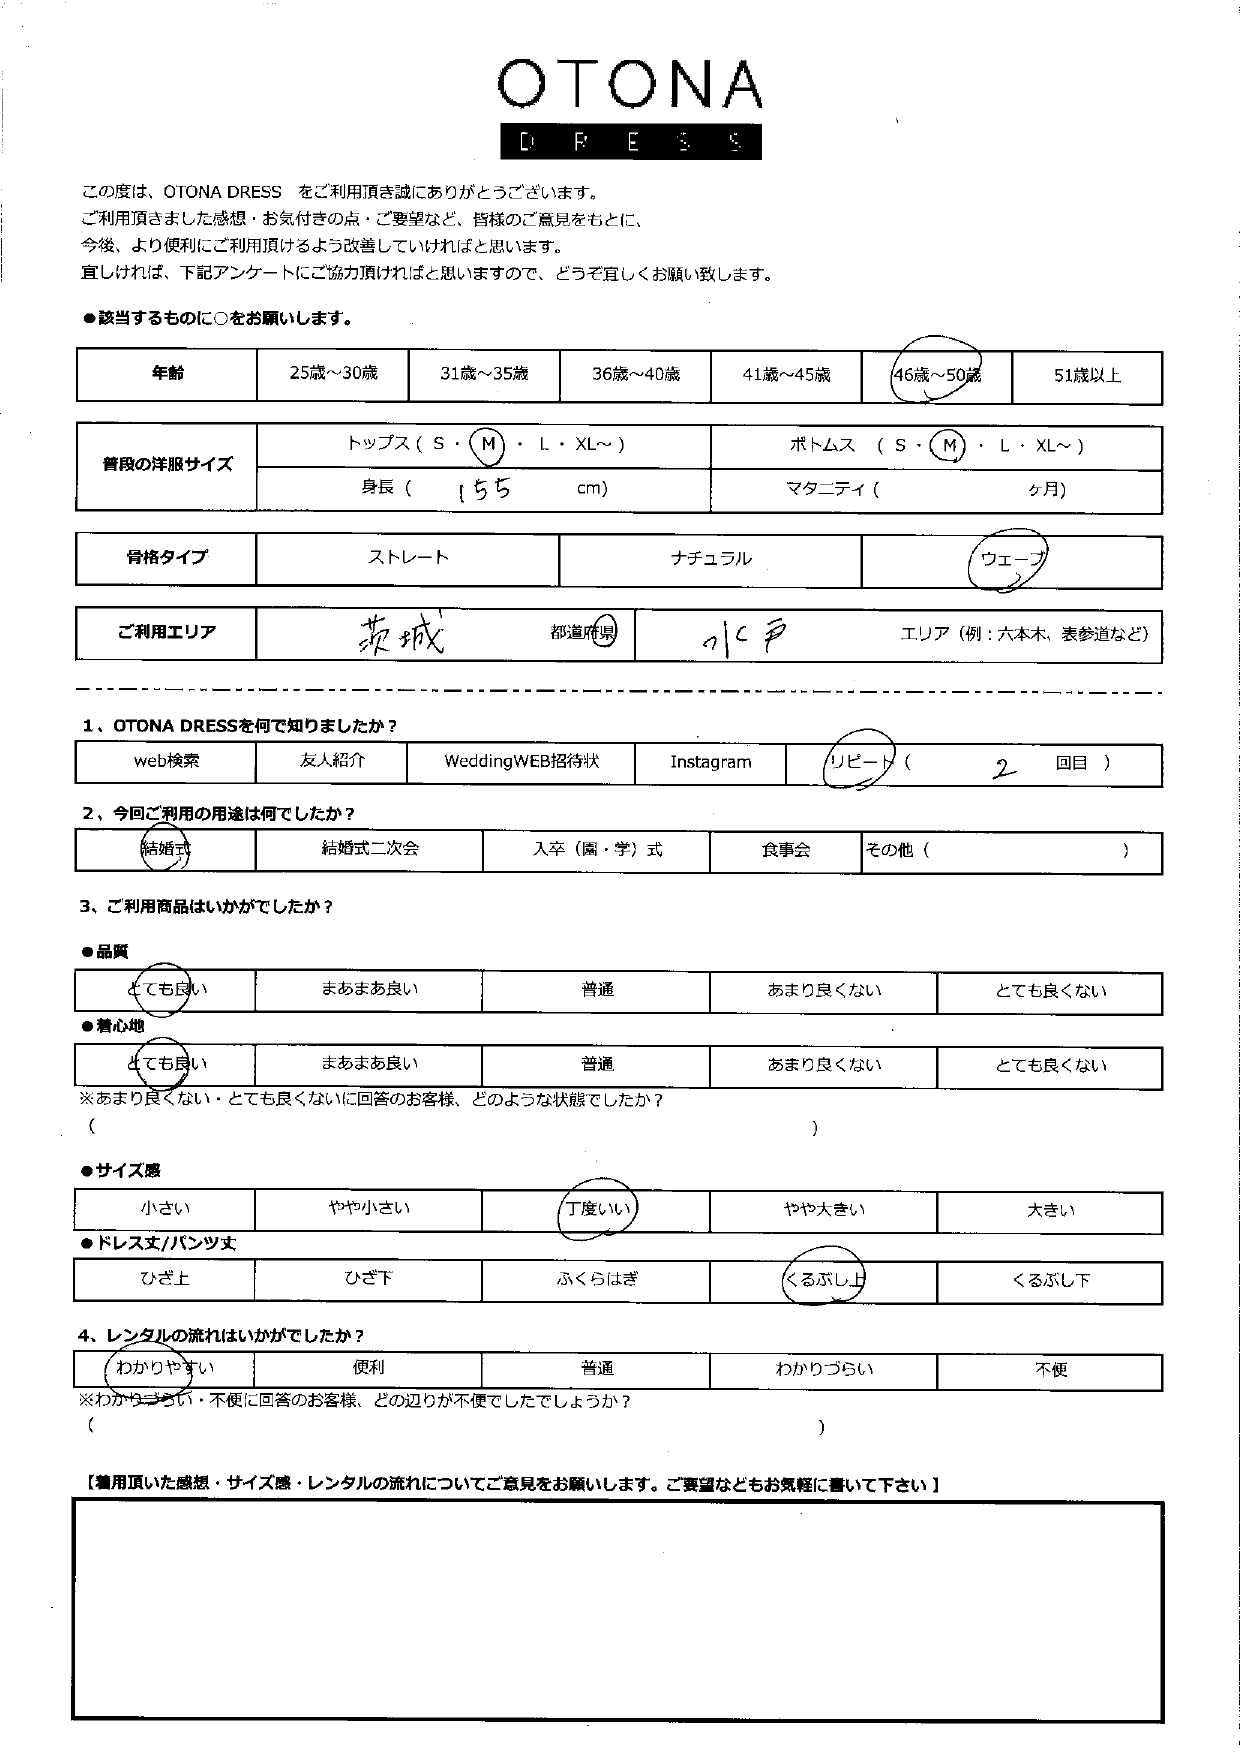 OTONA
DRESS
この度は、OTONA DRESS　をご利用頂き誠にありがとうございます。
ご利用頂きました感想・お気付きの点・ご要望など、皆様のご意見をもとに、
今後、より便利にご利用頂けるよう改善していければと思います。
宜しければ、下記アンケートにご協力頂ければと思いますので、どうぞ宜しくお願い致します。
●該当するものに○をお願いします。
年齢 25歳～30歳 31歳～35歳 36歳～40歳 41歳～45歳 46歳～50歳 51歳以上
普段の洋服サイズ
トップス ( S ・ M ・ L ・ XL～ ) ボトムス ( S ・ M ・ L ・ XL～ )
身長 ( 155 cm) マタニティ ( ヶ月)
骨格タイプ ストレート ナチュラル ウェーブ
ご利用エリア 茨城 都道府県 水戸 エリア（例：六本木、表参道など）
1、OTONA DRESSを何で知りましたか？
web検索 友人紹介 WeddingWEB招待状 Instagram リピート ( 2 回目 )
2、今回ご利用の用途は何でしたか？
結婚式 結婚式二次会 入卒（園・学）式 食事会 その他 ( )
3、ご利用商品はいかがでしたか？
●品質
とても良い まあまあ良い 普通 あまり良くない とても良くない
●着心地
とても良い まあまあ良い 普通 あまり良くない とても良くない
※あまり良くない・とても良くないに回答のお客様、どのような状態でしたか？
( )
●サイズ感
小さい やや小さい 丁度いい やや大きい 大きい
●ドレス丈/パンツ丈
ひざ上 ひざ下 ふくらはぎ くるぶし上 くるぶし下
4、レンタルの流れはいかがでしたか？
わかりやすい 便利 普通 わかりづらい 不便
※わかりづらい・不便に回答のお客様、どの辺りが不便でしたでしょうか？
( )
【着用頂いた感想・サイズ感・レンタルの流れについてご意見をお願いします。ご要望などもお気軽に書いて下さい】